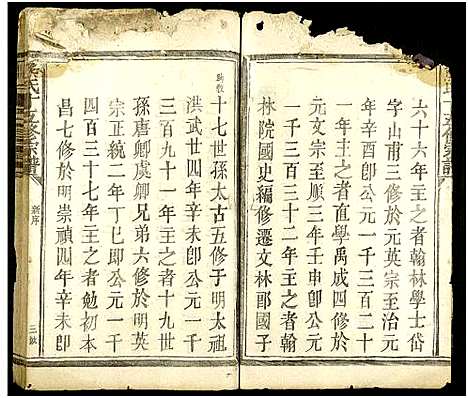 六十六年主之者翰林學士岱
字山甫三修於元英宗至治元
年辛酉即公元一千三百二十
一年主之者直學禹成四修於
元文宗至順三年壬申即公元
一千三百三十二年主之者翰
林院國史編修遷文林郎國子
助教
十七世孫太古五修于明太祖
洪武廿四年辛未即公元一千
三百九十一年主之者十九世
孫唐卿虞卿兄弟六修於明英
宗正統二年丁巳即公元一千
四百三十七年主之者勉初本
昌七修於明崇禎四年辛未即
氏十五修宗譜
新序
三